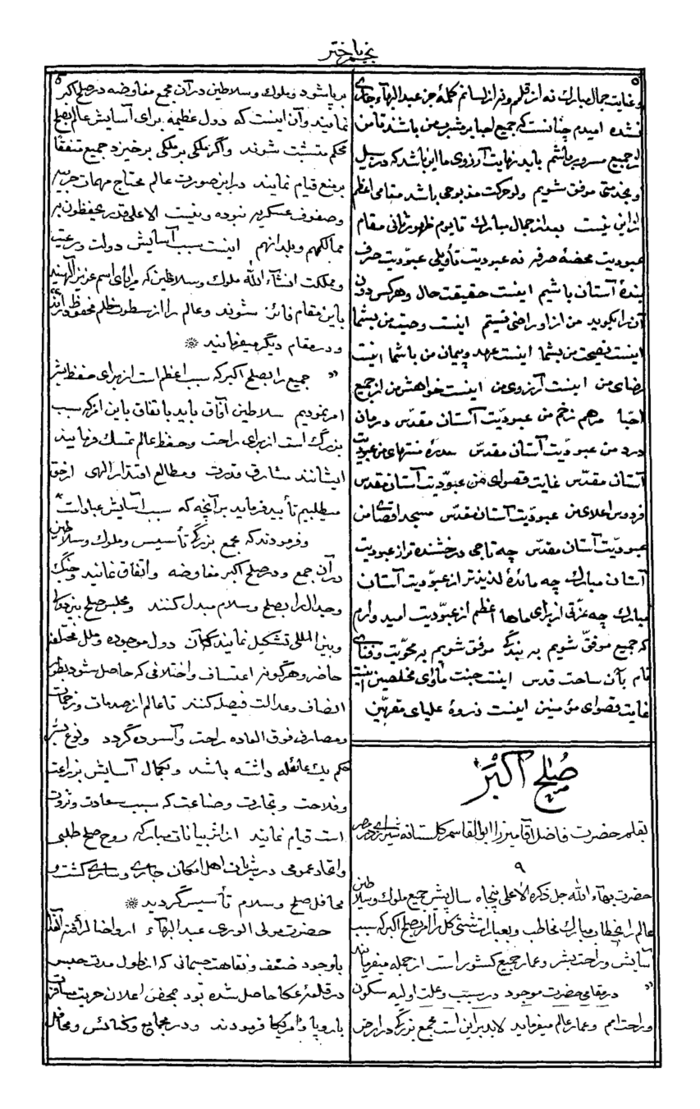 نجم باختر
۵
و غایت جمال مبارک نه از قلم و نه از لسانم کلمهٔ جز عبدالبهآء جاری
نشده امیدم چنانست که جمیع احبا بر مشرب من باشند تا من
از جمیع مسرور باشم باید نهایت آرزوی ما این باشد که در سبیل
او بخدمتی موفق شویم ولو حرکت مذبوحی باشد مقامی اعظم
از این نیست بعد از جمال مبارک تا یوم ظهور ثانی مقام
عبودیت محضهٔ صرفه نه عبودیت تأویلی عبودیت صرف
بندهٔ آستان باشیم اینست حقیقت حال و هر کس دون
آن را بگوید من از او راضی نیستم اینست وصیت من بشما
اینست نصیحت من بشما اینست عهد و پیمان من با شما اینست
رضای من اینست آرزوی من اینست خواهش من از جمیع
احبا مرهم زخم من عبودیّت آستان مقدّس درمان
درد من عبودیّت آستان مقدّس سدرهٔ منتهای من عبودیت
آستان مقدّس غایت قصوای من عبودیّت آستان مقدس
فردوس اعلای من عبودیّت آستان مقدّس مسجد اقصای من
عبودیّت آستان مقدّس چه تاجی درخشنده‌تر از عبودیت
آستان مبارک چه مائدهٔ لذیذتر از عبودیّت آستان
مبارک چه عزّتی از برای ماها اعظم از عبودیت امیدوارم
که جمیع موفّق شویم به بندگی موفق شویم به محویّت و فنای
تام بآن ساحت قدس اینست جنت مأوای مخلصین اینست
غایت قصوای مؤمنین اینست ذروهٔ علیای مقربین
صُلح اکبَر
بقلم حضرت فاضل آقا میرزا ابوالقاسم گلستانه شیرازی در مصر
۹
حضرت بهآء الله جل ذکره الاعلی پنجاه سال پیش جمیع ملوک و سلاطین
عالم را بخطابات مبارک مخاطب و بعبارات شتّی کل را امر بصلح اکبر که سبب
آسایش و راحت بشر و عمار جمیع کشور است از جمله میفرمایند
« در مقامی حضرت موجود در سبب و علت اولیه سکون
و راحت امم و عمار عالم میفرماید لابد بر این است مجمع بزرگی در ارض
۵
بر پا شود و ملوک و سلاطین در آن مجمع مفاوضه در صلح اکبر
نمایند و آن اینست که دول عظیمه برای آسایش عالم بصلح
محکم متشبث شوند و اگر ملکی بر ملکی برخیزد جمیع متفقاً
بر منع قیام نمایند در این صورت عالم محتاج مهمات حربیه
و صفوف عسکریه نبوده و نیست الا علی قدر یحفظون به
ممالکهم و بلدانهم اینست سبب آسایش دولت و رعیت
و مملکت انشآء الله ملوک و سلاطین که مرایای اسم عزیز الهیند
باین مقام فائز شوند و عالم را از سطوت ظلم محفوظ دارند
و در مقام دیگر میفرمایند *
« جمیع را بصلح اکبر که سبب اعظم است از برای حفظ بشر
امر نمودیم سلاطین آفاق باید باتفاق باین امر که سبب
بزرگ است از برای راحت و حفظ عالم تمسک فرمایند
ایشانند مشارق قدرت و مطالع اقتدار الهی از حق
میطلبیم تأیید فرماید بر آنچه که سبب آسایش عباد است
و فرمودند که مجمع بزرگی تأسیس و ملوک و سلاطین
در آن جمع و در صلح اکبر مفاوضه و اتفاق نمایند و جنگ
و جدال را بصلح و سلام مبدل کنند و مجلس صلح
و بین المللی تشکیل نمایند دول موجوده و ملل مختلفه
حاضر و هرگونه اعتساف و اختلافی که حاصل شود بطور
انصاف و عدالت فیصل کنند تا عالم از صدمات و زحمات
و مصارف فوق العاده راحت و آسوده گردد و نوع بشر
حکم یک عائله داشته باشد و بکمال آسایش بزراعت
و فلاحت و تجارت و صناعت که سبب سعادت و ثروت
است قیام نمایند از اثر بیانات مبارکه روح صلح طلبی
و اتحاد عمومی در شریان اهل امکان جاری و ساری گشت و
محافل صلح و سلام تأسیس گردید *
حضرت مولی الوری عبدالبهآء ارواحنا لرأفته الفدا
با وجود ضعف و نقاهت جسمانی که از طول مدت حبس
در قلعهٔ عکا حاصل شده بود بمحض اعلان حریت سفر
باروپا و امریکا فرمودند و در مجامع و کنائس و محافل